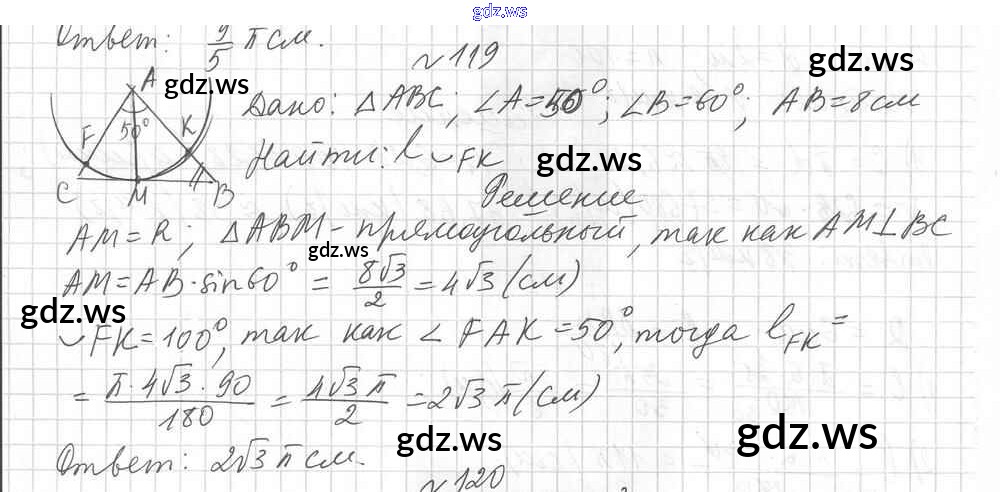 gdz.ws
Ответ: 9/5 π см.
№119
gdz.ws
gdz.ws
A
50°
F
K
C
M
B
Дано: △ABC; ∠A=50°; ∠B=60°; AB=8см
Найти: l ⌣FK
gdz.ws
Решение
AM=R; △ABM - прямоугольный, так как AM⊥BC
gdz.ws
AM=AB·sin60° = 8√3/2 = 4√3 (см)
gdz.ws
⌣FK=100°, так как ∠FAK=50°, тогда l FK =
= π·4√3·90/180 = 4√3 π/2 = 2√3 π (см)
gdz.ws
gdz.ws
Ответ: 2√3 π см.
№120